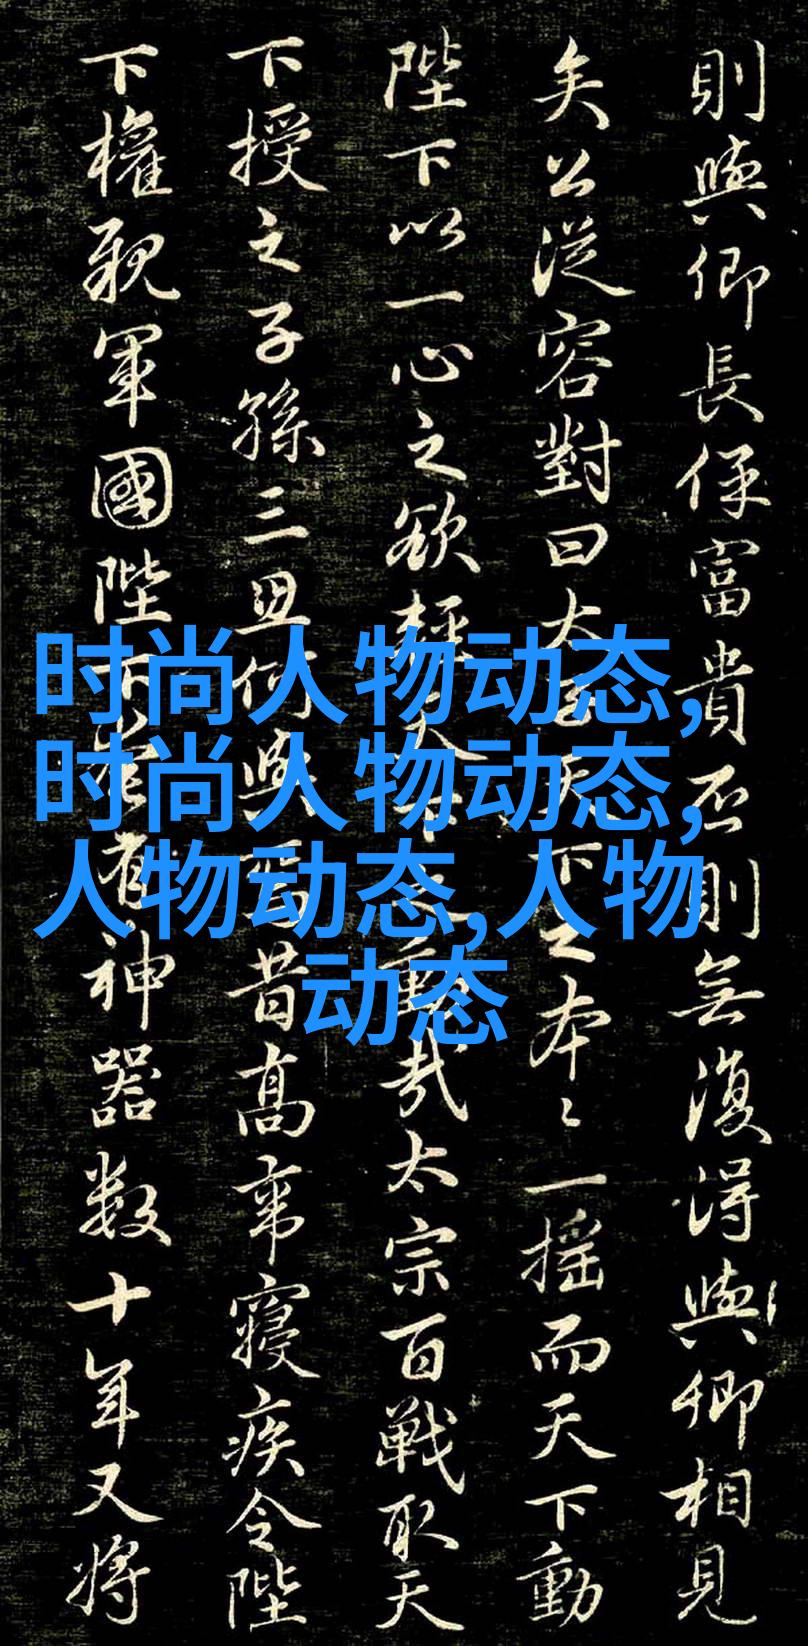 則與卿長保富貴否則無復得與卿相見
矣公從容對曰太天下之本〻一搖而天下動
陛下以一心之欲輕天下之動哉太宗百戰取天
下授之子孫三世何與焉昔高帝寢疾令陛
下權親軍國陛下奄有神器數十年又將
时尚人物动态,
时尚人物动态,
人物动态,人物
动态